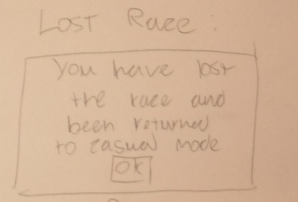 LOST Race :
You have lost
the race and
been returned
to casual mode
OK